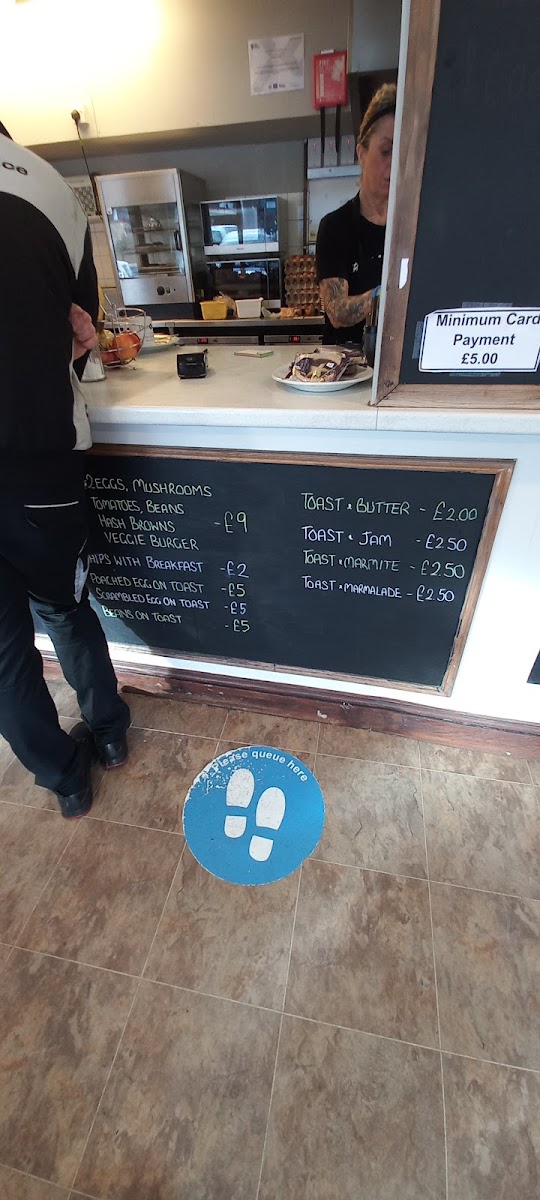 Minimum Card
Payment
£5.00
2 EGGS, MUSHROOMS
TOMATOES, BEANS
HASH BROWNS - £9
VEGGIE BURGER
HIPS WITH BREAKFAST - £2
POACHED EGG ON TOAST - £5
SCRAMBLED EGG ON TOAST - £5
BEANS ON TOAST - £5
TOAST & BUTTER - £2.00
TOAST & JAM - £2.50
TOAST & MARMITE - £2.50
TOAST & MARMALADE - £2.50
Please queue here